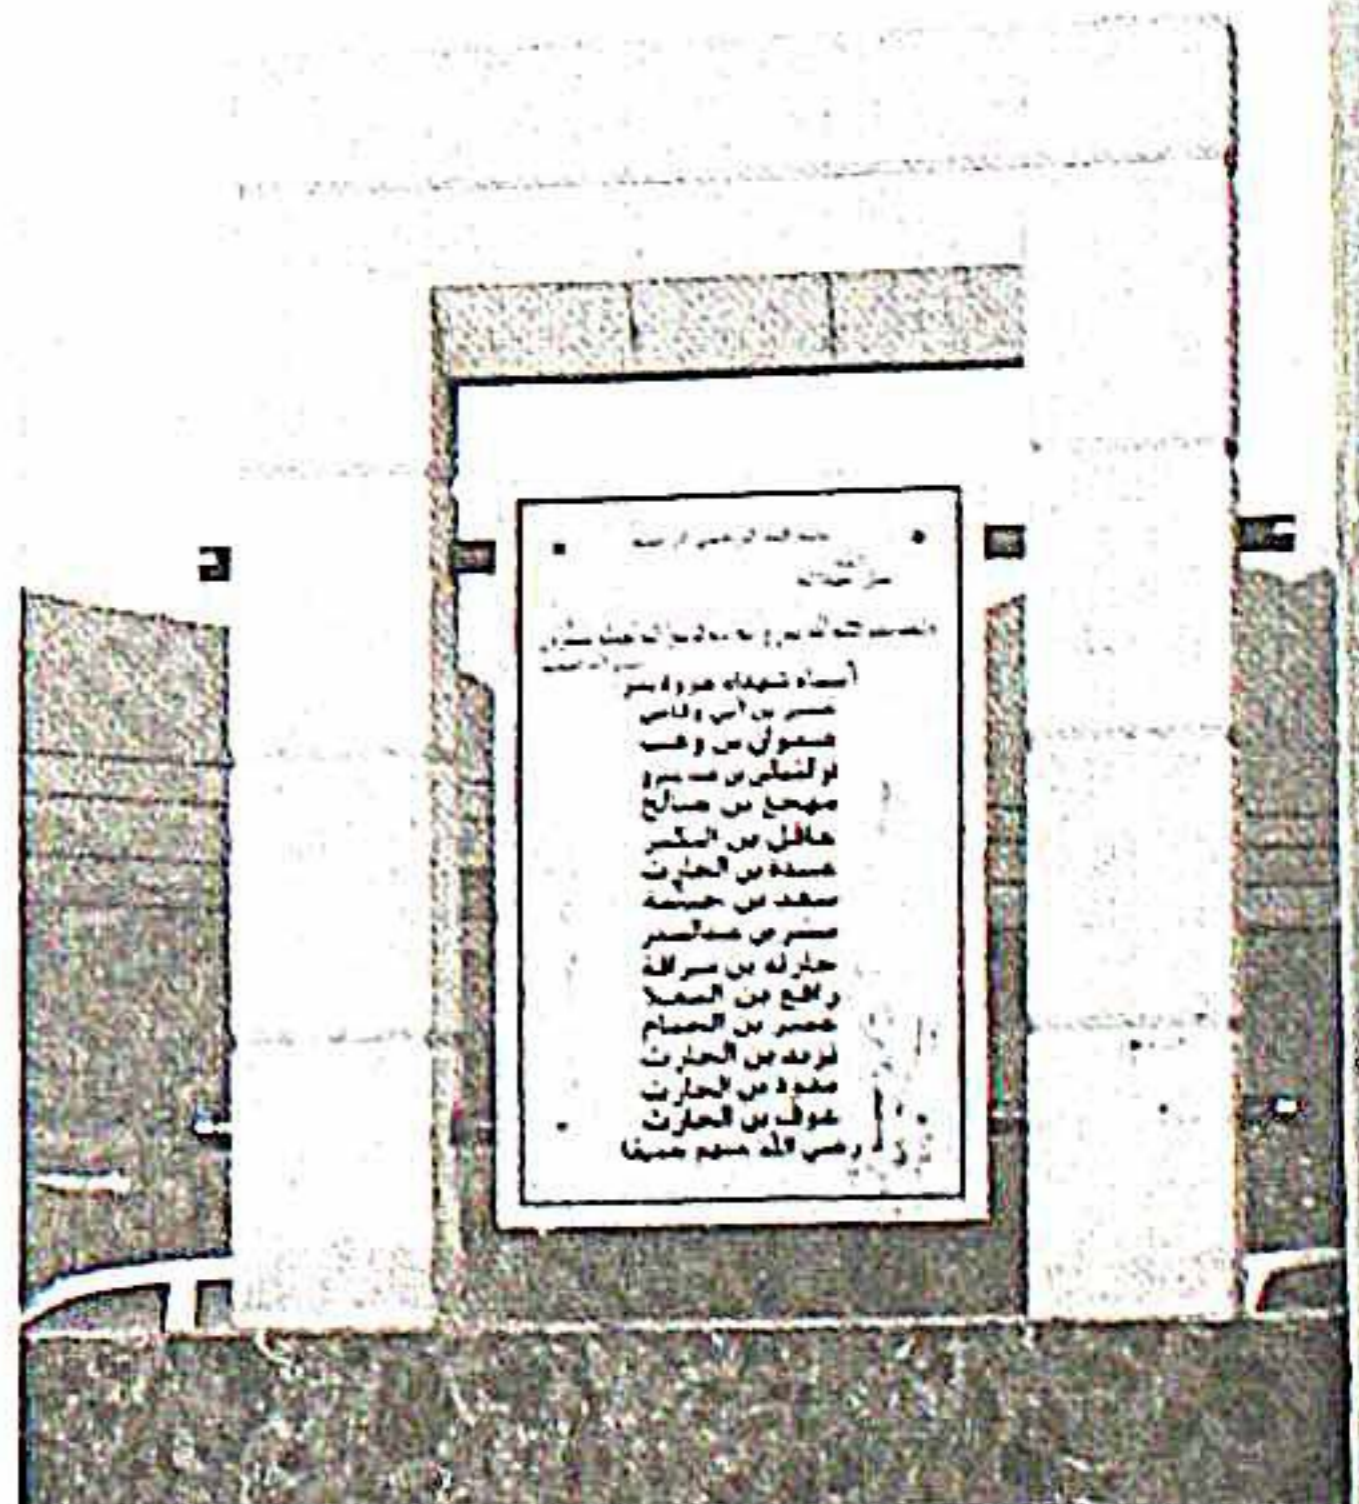 بسم الله الرحمن الرحيم
ولقد نصركم الله ببدر وأنتم أذلة فاتقوا الله لعلكم تشكرون
أسماء شهداء غزوة بدر
عمير بن أبي وقاص
صفوان بن وهب
ذو الشمالين بن عبد عمرو
مهجع بن صالح
عاقل بن البكير
عبيدة بن الحارث
سعد بن خيثمة
مبشر بن عبدالمنذر
حارثة بن سراقة
رافع بن المعلا
عمير بن الحمام
يزيد بن الحارث
معوذ بن الحارث
عوف بن الحارث
رضي الله عنهم جميعا